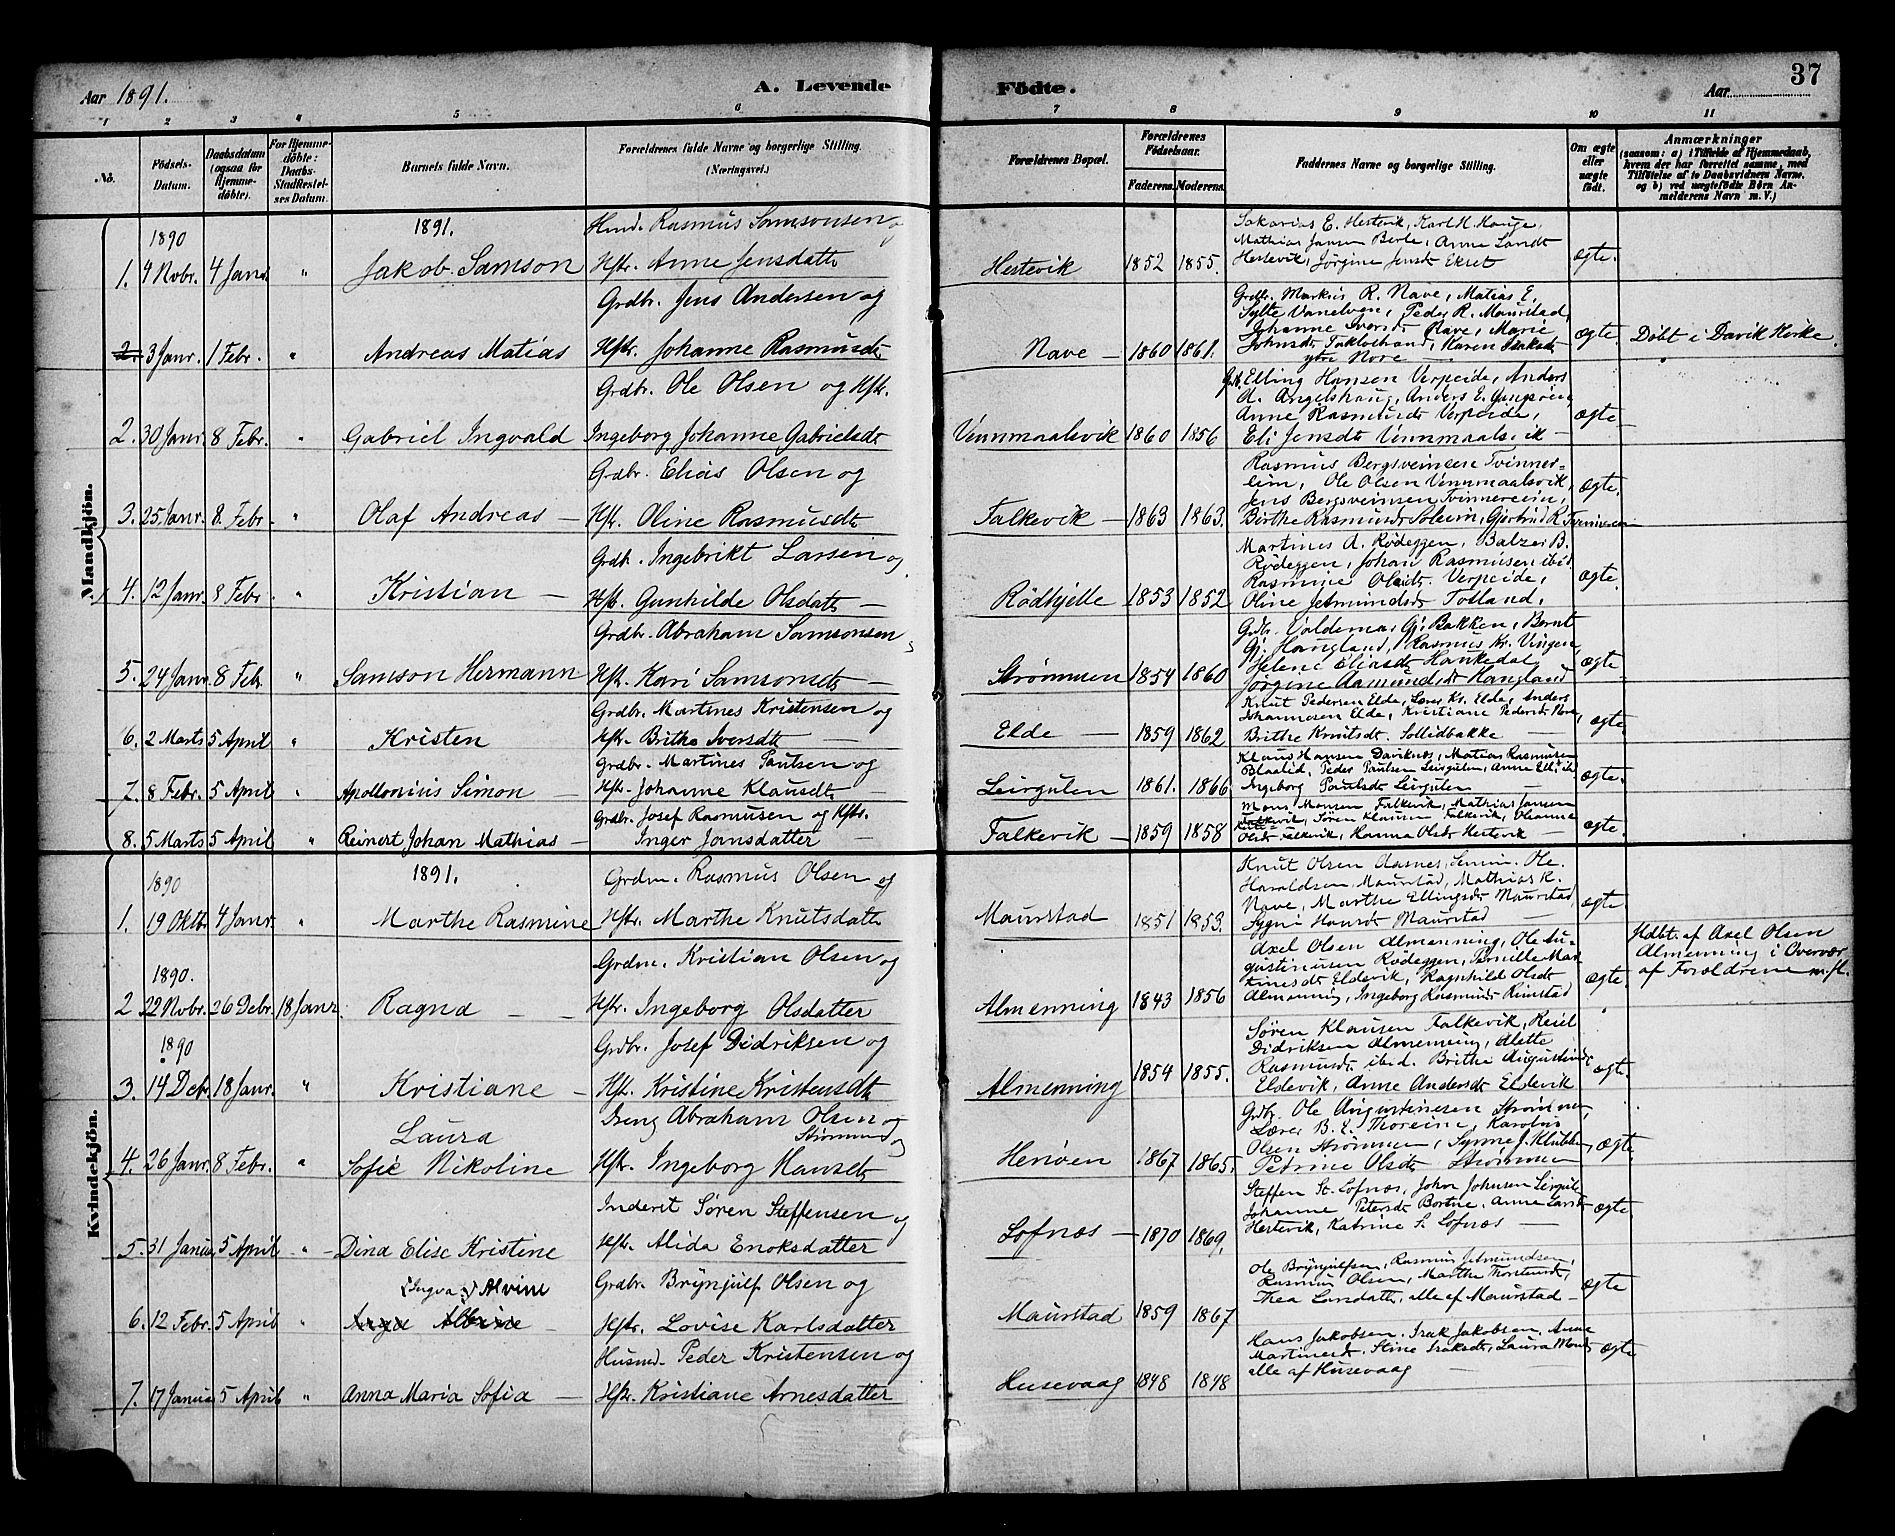 Aar 1891. A. Levende Födte. Aar 37
1 2 3 4 5 6 7 8 9 10 11
No. Födsels-Datum. Daabsdatum (ogsaa for Hjemmedöbte). For Hjemmedöbte: Daabs-Stadfæstelses Datum. Barnets fulde Navn. Forældrenes fulde Navne og borgerlige Stilling. (Næringsvei.) Forældrenes Bopæl. Forældrenes Födselsaar. Faderens. Moderens. Faddernes Navne og borgerlige Stilling. Om ægte eller uægte födt. Anmærkninger (saasom: a) i Tilfælde af Hjemmedaab, hvem der har forrettet samme, med Tilföielse af to Daabsvidners Navne, og b) ved uægtefödte Börn Anmelderens Navn m. V.)
Mandkjön.
1891.
1. 1890 4 Novbr. 4 Janr. " Jakob Samson Husmd. Rasmus Samsonsen og Hstr. Anne Jensdattr Hestevik 1852 1855. Sakarias E. Hestevik, Karl H. Hauge, Mathias Jansen Berle, Anne Larsdt Hestevik, Jørgine Jensdt Ekset ægte.
2. 3 Janr. 1 Febr. " Andreas Matias Grdbr. Jens Andersen og Hstr. Johanne Rasmusdtr Nave 1860 1861. Grdbr. Markus R. Nave, Matias E. Sylte Vanelven, Peder R. Maurstad, Johanne Iversdt Nave, Marie Johnsdt, Karen Isaksdt ytre Nore ægte Döbt i Davik Kirke.
2. 30 Janr. 8 Febr. " Gabriel Ingvald Grdbr. Ole Olsen og Hstr. Ingeborg Johanne Gabrielsdt Vennmaalsvik 1860 1856 Elling Hansen Verpeide, Anders A. Angelshaug, Anders E. Anne Rasmusdt Verpeide, Eli Jensdt Vennmaalsvik ægte
3. 25 Janr. 8. Febr. " Olaf Andreas Grdbr. Elias Olsen og Hstr. Oline Rasmusdt Falkevik 1863 1863. Rasmus Bergsveinsen Tvinnereim, Ole Olsen Vennmaalsvik, Jens Bergsveinsen Tvinnereim, Birthe Rasmusdt Soleim, Gjertrud R. Tvinnereim ægte.
4. 12 Janr. 8 Febr. " Kristian Grdbr. Ingebrikt Larsen og Hstr. Gunhilde Olsdattr Rödhjelle 1853 1852 Martines A. Rödeggen, Balzer B. Rödeggen, Johan Rasmusen ibid Rasmine Olsdt. Verpeide, Oline Jetmundsdt Totland. ægte.
5. 24 Janr. 8 Febr. " Samson Hermann Grdbr. Abraham Samsonsen Hstr. Kari Samsonsdt Strømmen 1854 1860 Grdbr. Valdemar Gj. Bakken, Bernt Gj. Haugland, Rasmus Kr. Vingen, Helene Eliasdt Hankedal Jørgine Aamundsdt Haugland ægte
6. 2 Marts 5 April " Kristen Grdbr. Martines Kristensen og Hstr. Brithe Iversdt Elde 1859 1862 Knut Pedersen Elde, Lærer Kr. Elde, Anders Johannesen Elde, Kristiane Pedersdt Nore, Brithe Knutsdt. Sollidbakke ægte.
7. 8 Febr. 5 April " Apollonius Simon Grdbr. Martines Paulsen og Hstr. Johanne Klausdtr Leirgulen 1861. 1866 Klaus Hansen Daviknæs, Matias Rasmusen Blaalid, Peder Paulsen Leirgulen, Anne Ingeborg Paulsdt Leirgulen ægte.
8. 5 Marts 5 April " Reinert Johan Mathias Grdbr. Josef Rasmusen og Hstr. Inger Jansdatter Falkevik 1859 1858 Mons Monsen Falkevik, Mathias Jansen Falkevik, Søren Klausen Falkevik, Olsdt Falkevik, Hanna Olsdt Hestvik ægte.
Kvindekjön.
1891.
1. 1890 19 Oktbr 4 Janr. " Marthe Rasmine Grdm. Rasmus Olsen og Hstr. Marthe Knutsdattr Maurstad 1851 1853. Knut Olsen Aasnes, Semin. Ole Haraldsen Maurstad, Mathias R. Nave, Marthe Ellingsdt Maurstad Sygni Hansdt Maurstad ægte
2 1890. 22 Novbr. 26 Debr. 18 Janr. Ragna Grdm. Kristian Olsen og Hstr. Ingeborg Olsdatter Almenning 1843 1856 Axel Olsen Almenning, Ole Augustinusen Rödeggen, Pernille Martinesdt Eldevik, Ragnhilde Olsdt Almenning, Ingeborg Rasmusdt Rimstad ægte. Hdbt. af Axel Olsen Almenning i Overvær af Foraldrene m. fl.
3. 1890 14 Debr. 18 Janr. " Kristiane Grdbr. Josef Didriksen og Hstr. Kristine Kristensdt Almenning 1854 1855. Søren Klausen Falkevik, Reiel Didriksen Almenning, Alette Rasmusdt ibid. Brithe Augustinsdt Eldevik, Anne Andersdt Eldevik ægte.
4. 26 Janr. 8 Febr. " Laura Sofie Nikoline Dreng Abraham Olsen og Strømmen Hstr. Ingeborg Hansdt Henöen 1867 1865. Grdbr. Ole Augustinesen Strömmen, Lærer B. E. Thoreine, Karolus Olsen Strømmen, Synne J. Klubben, Petrine Olsdt Strømmen ægte.
5. 31 Januar 5 April " Dina Elise Kristine Inderst Søren Steffensen og Hstr. Alida Enoksdatter Lofnæs 1870 1869. Steffen St. Lofnæs, John Johnsen Leirgulen Johanne Petersdt Bortne, Anne Larsdt Hestevik, Katrine S. Lofnæs ægte.
6. 12 Febr. 5 April " (Ingva) Alvine Grdbr. Brynjulf Olsen og Hstr. Lovise Karlsdatter Maurstad 1859 1867 Ole Brynjulfsen, Rasmus Jetmundsen, Rasmus Olsen, Marthe Thorsdt, Thea Larsdattr, alle af Maurstad ægte
7. 17 Januar 5 April " Anna Maria Sofia Husmd. Peder Kristensen og Hstr. Kristiane Arnesdatter Husevaag 1848 1848 Hans Jakobsen, Isak Jakobsen, Anne Martinesdt. Stine Isaksdt, Laura Monsdt, alle af Husevaag ægte